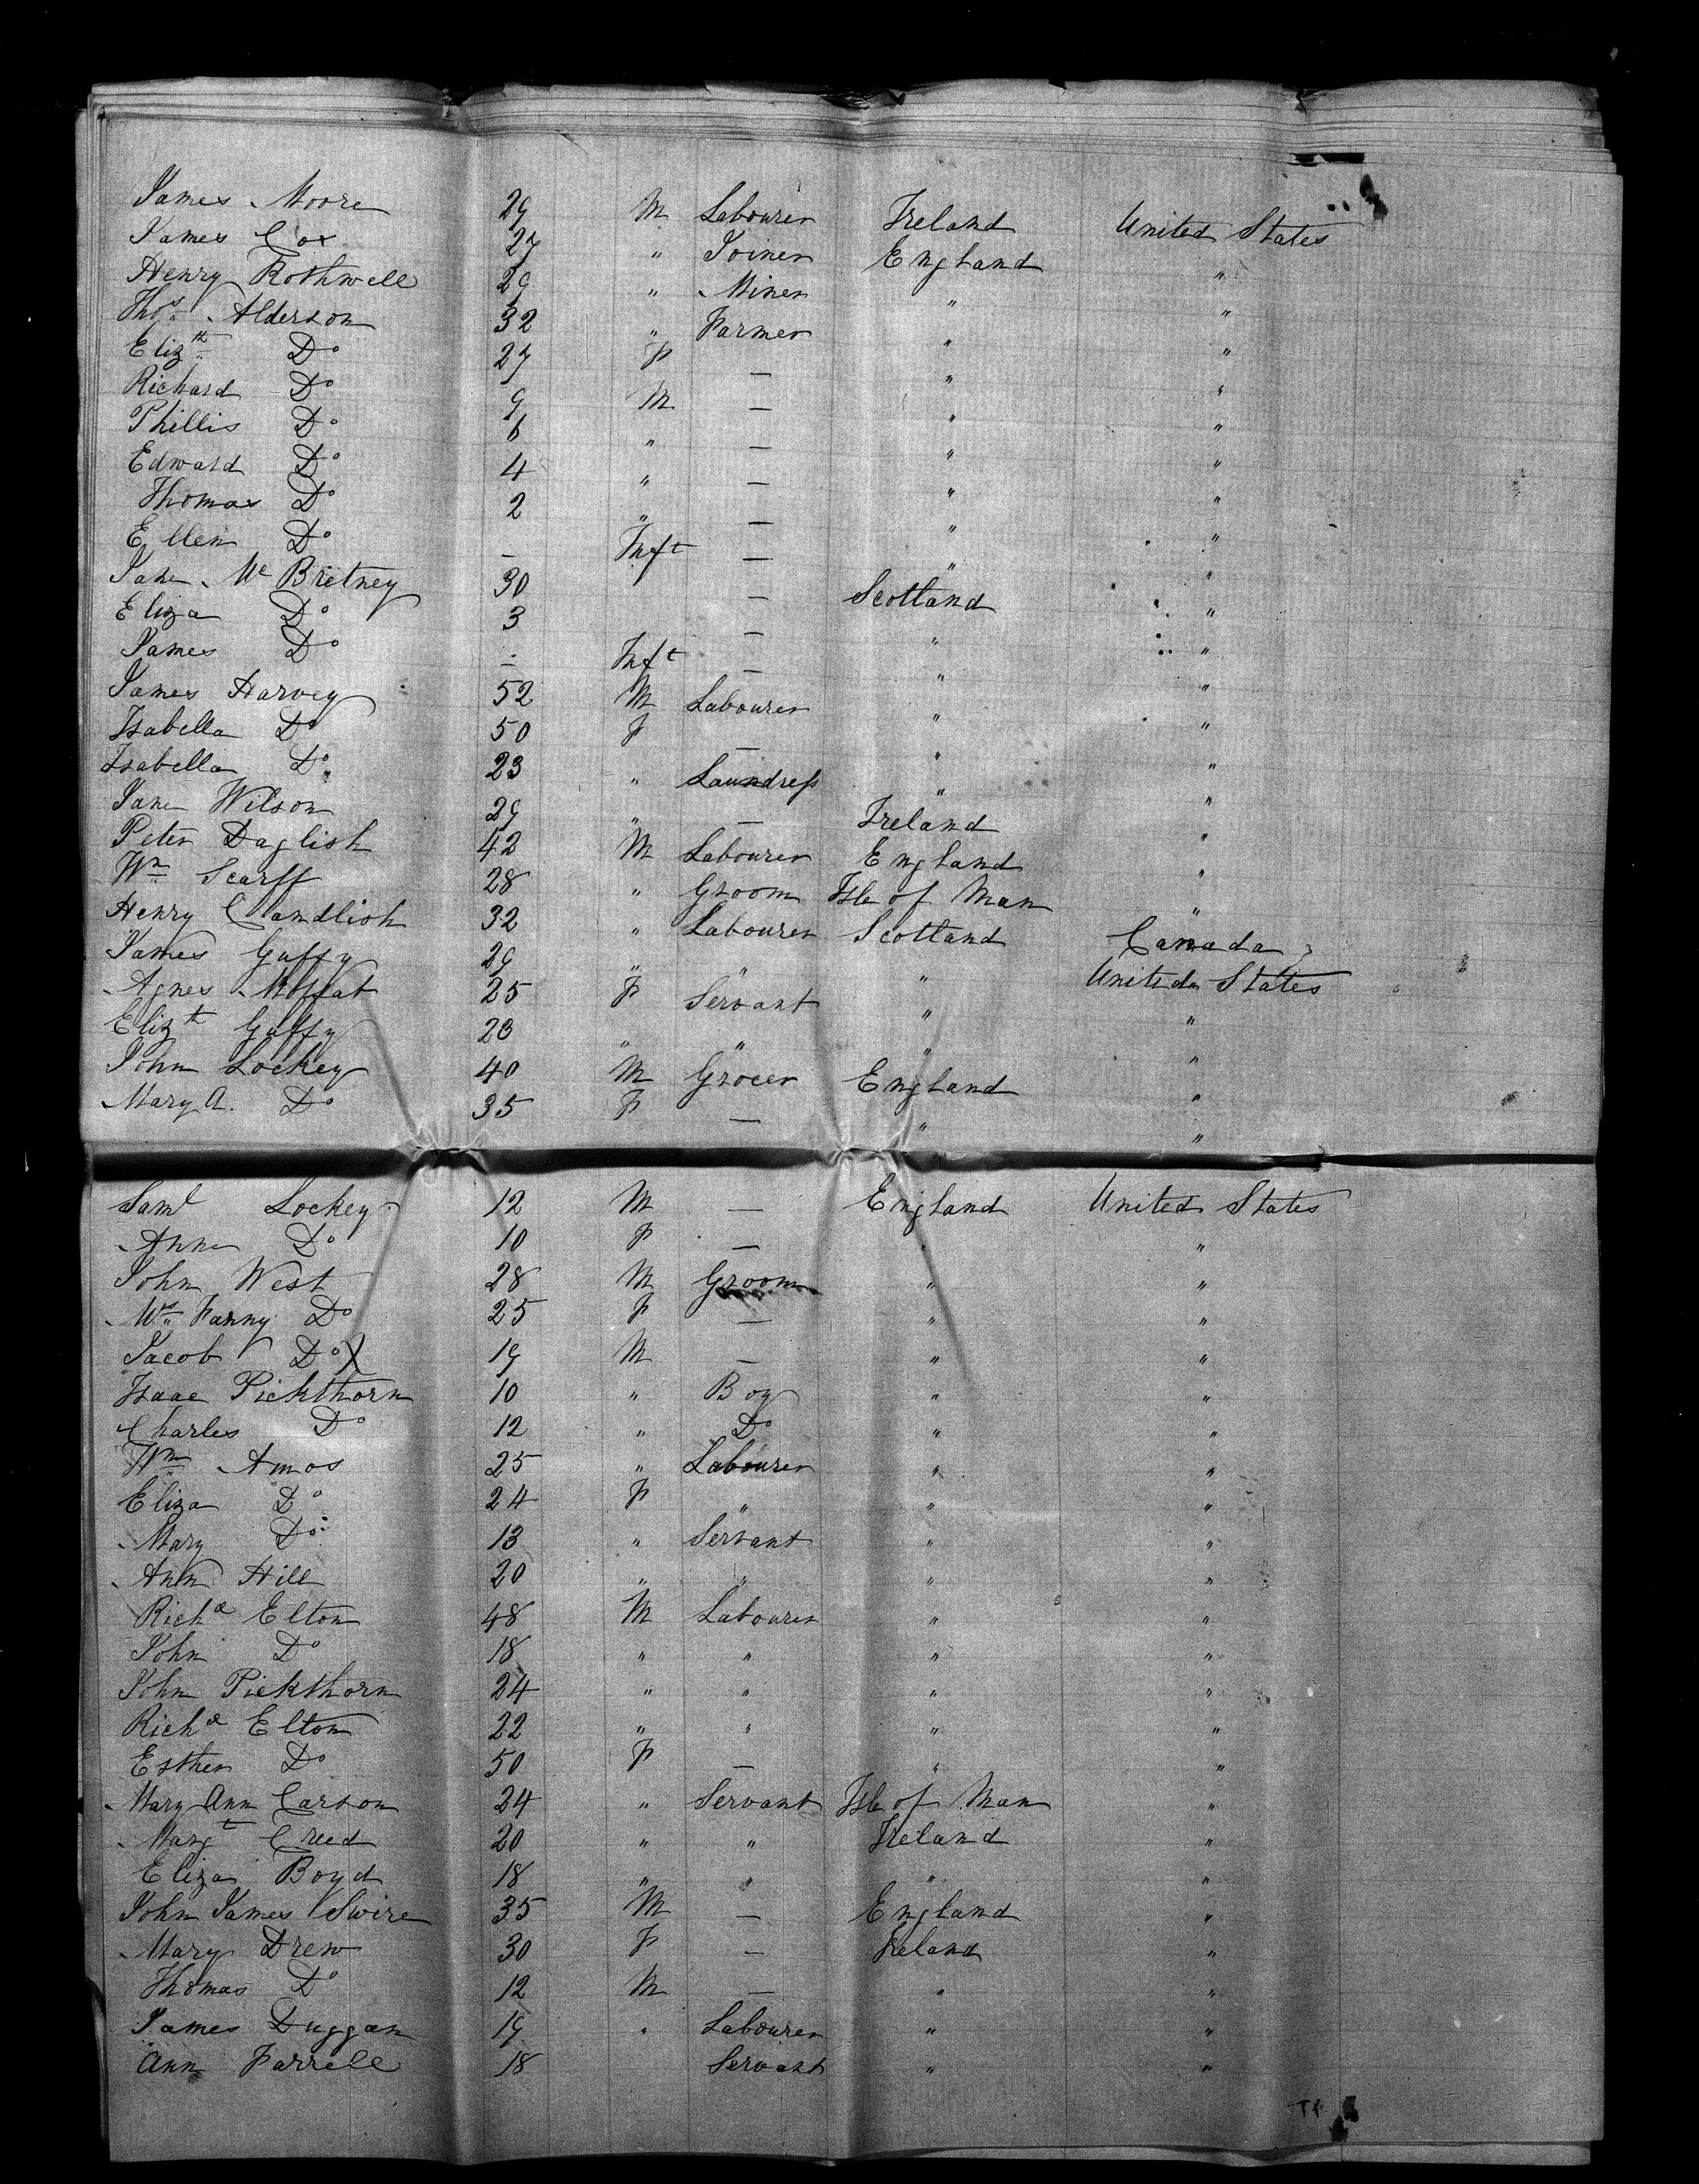 James Moore 29 M Labourer Ireland United States
James Cox 27 " Joiner England "
Henry Rothwell 29 " Miner " "
Thos. Alderson 32 " Farmer " "
Elizth Do 27 F — " "
Richard Do 9 M — " "
Phillis Do 6 " — " "
Edward Do 4 " — " "
Thomas Do 2 " — " "
Ellen Do — Inft — " "
Jane Mc Britney 30 — Scotland "
Eliza Do 3 — " "
James Do — Inft — " "
James Harvey 52 M Labourer " "
Isabella Do 50 F — " "
Isabella Do 23 " Laundress " "
Jane Wilson 29 " — Ireland "
Peter Daglish 42 M Labourer England "
Wm Scarff 28 " Groom Isle of Man "
Henry Candlish 32 " Labourer Scotland Canada
James Guffy 29 " " " United States
Agnes Moffat 25 F Servant " "
Elizth Guffy 23 " " " "
John Lockey 40 M Grocer England "
Mary A. Do 35 F — " "
Saml Lockey 12 M — England United States
Anne Do 10 F — " "
John West 28 M Groom " "
Mrs Fanny Do 25 F — " "
Jacob Do 19 M — " "
Isaac Pickthorn 10 " Boy " "
Charles Do 12 " Do " "
Wm Amos 25 " Labourer " "
Eliza Do 24 F " " "
Mary Do 13 " Servant " "
Ann Hill 20 " " " "
Richd Elton 48 M Labourer " "
John Do 18 " " " "
John Pickthorn 24 " " " "
Richd Elton 22 " " " "
Esther Do 50 F — " "
Mary Ann Carson 24 " Servant Isle of Man "
Margt Creed 20 " " Ireland "
Eliza Boyd 18 " " " "
John James Swire 35 M — England "
Mary Drew 30 F — Ireland "
Thomas Do 12 M — " "
James Duggan 19 " Labourer " "
Ann Farrell 18 Servant " "